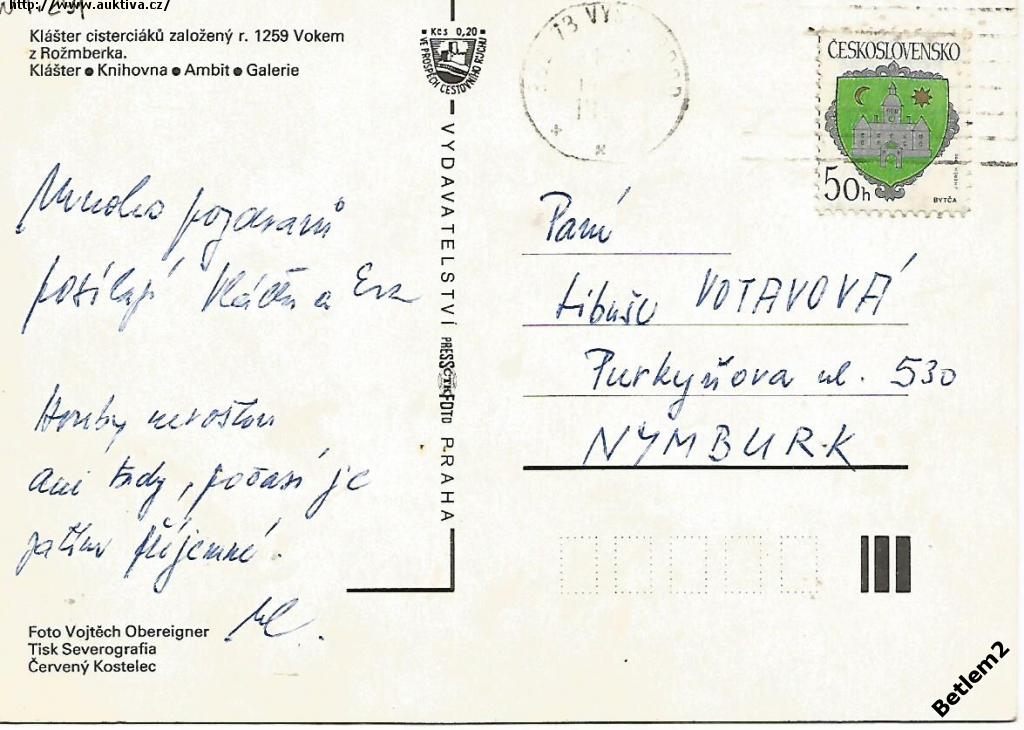 http://www.auktiva.cz/
Klášter cisterciáků založený r. 1259 Vokem
z Rožmberka.
Klášter ● Knihovna ● Ambit ● Galerie
Kčs 0,20
VE PROSPĚCH CESTOVNÍHO RUCHU
ČESKOSLOVENSKO
50h
BYTČA
Mnoho pozdravů
posílají Vláďa a Eva
Houby nerostou
ani tady, počasí je
zatím příjemné.
VYDAVATELSTVÍ PRESSFOTO PRAHA
ČTK
Paní
Libuše VOTAVOVÁ
Purkyňova ul. 530
NYMBURK
Foto Vojtěch Obereigner
Tisk Severografia
Červený Kostelec
Betlem2